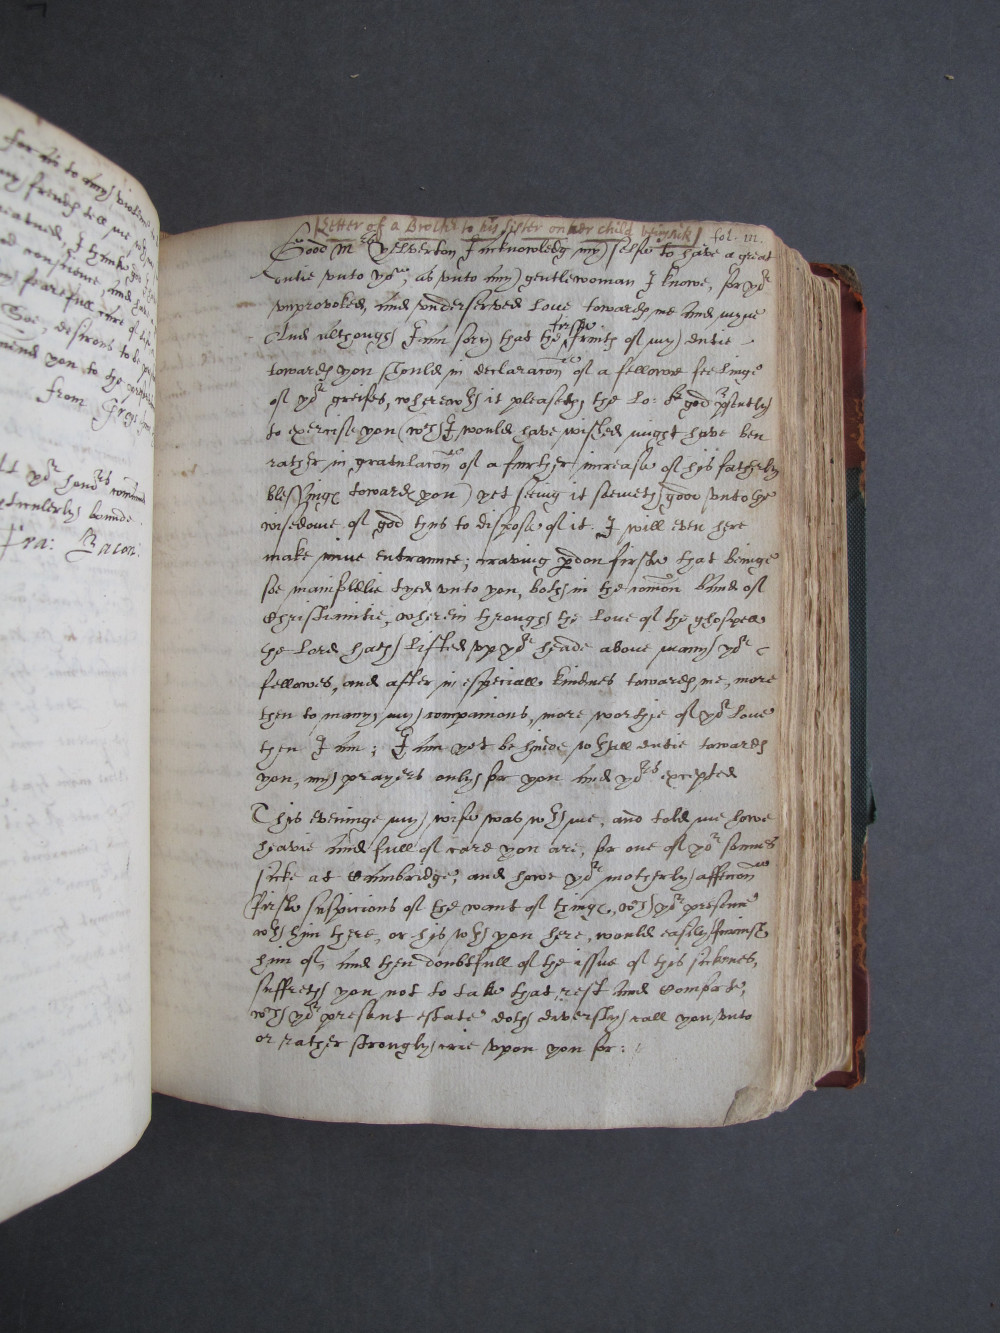 for
my frends tell me
I thinke
from Grays
yor honors
bounde.
Fra: Bacon:
Letter of a Brother to his sister on her child being sick fol. m.
Good Mrs Yelverton I acknowledg my selfe to have a great
dutie vnto you, as vnto any gentlewoman I knowe, for yor
vnprovoked and vndeserved love towards me and myne
And although I am sory that the first fruits of my dutie
towards you should in declaracon of a fellowe feelinge
of yor greifes, wherewth it pleaseth the Lo: or god presently
to exercise you (wch I would have wished might have ben
rather in gratulacon of a further increase of his fatherly
blessings towards you) yet seing it seemeth good vnto the
wisedome of god thus to dispose of it. I will even here
make mine entrannce; craving pdon first that beinge
soe manifoldlie tyed vnto you, both in the comon band of
Christianitie, wherein through the love of the ghospell
the Lord hath lifted vp yor heade above many yor
fellowes, and after in especiall kindnes towards me, more
then to many my companions, more worthie of yor love
then I am; I am yet behinde wth all dutie towards
you, my prayers only for you and yors excepted
This eveninge my wife was wth me, and told me howe
heavie and full of care you are, for one of yor sonnes
sicke at Cambridge, and howe yor motherly affeccon
first suspicious of the want of things, wch yor presence
wth him there, or his wth you here, would easily furnish
him of, and then doubtfull of the issue of this sicknes,
suffreth you not to take that rest and comforte,
wch yor present estate doth diversly call you vnto
or rather strongly crie vpon you for: